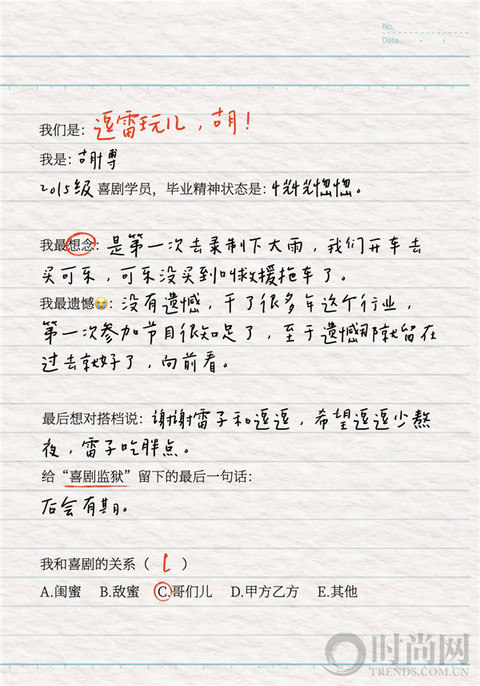 No.
Date.
我们是：逗雷玩儿，胡！
我是：胡博
2015级喜剧学员，毕业精神状态是：恍恍惚惚。
我最想念：是第一次去录制下大雨，我们开车去
买可乐，可乐没买到叫救援拖车了。
我最遗憾😭：没有遗憾，干了很多年这个行业，
第一次参加节目很知足了，至于遗憾那就留在
过去就好了，向前看。
最后想对搭档说：谢谢雷子和逗逗，希望逗逗少熬
夜，雷子吃胖点。
给“喜剧监狱”留下的最后一句话：
后会有期。
我和喜剧的关系（ C ）
A.闺蜜 B.敌蜜 C.哥们儿 D.甲方乙方 E.其他
时尚网
TRENDS.COM.CN